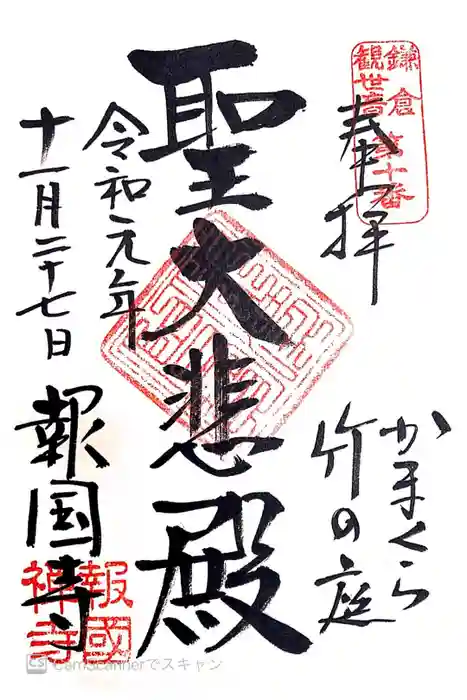 鎌倉
観世音
第十番
奉拝
かまくら
竹の庭
聖大悲殿
令和元年
十一月二十七日
報国寺
報國
禅寺
CS CamScannerでスキャン